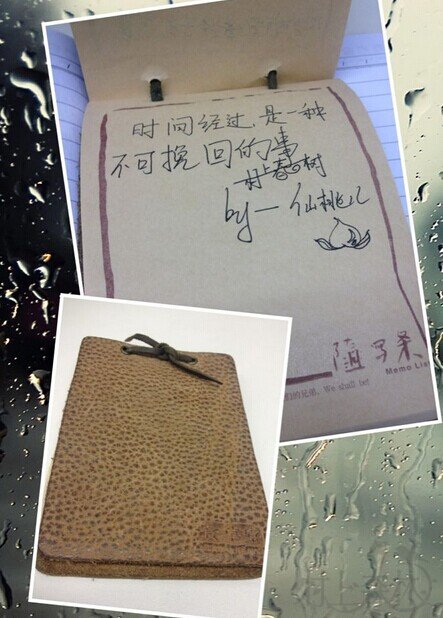 时间经过,是一种
不可挽回的事
村上春树
by—仙桃儿
随写录
Memo List
们的兄弟、We shall not